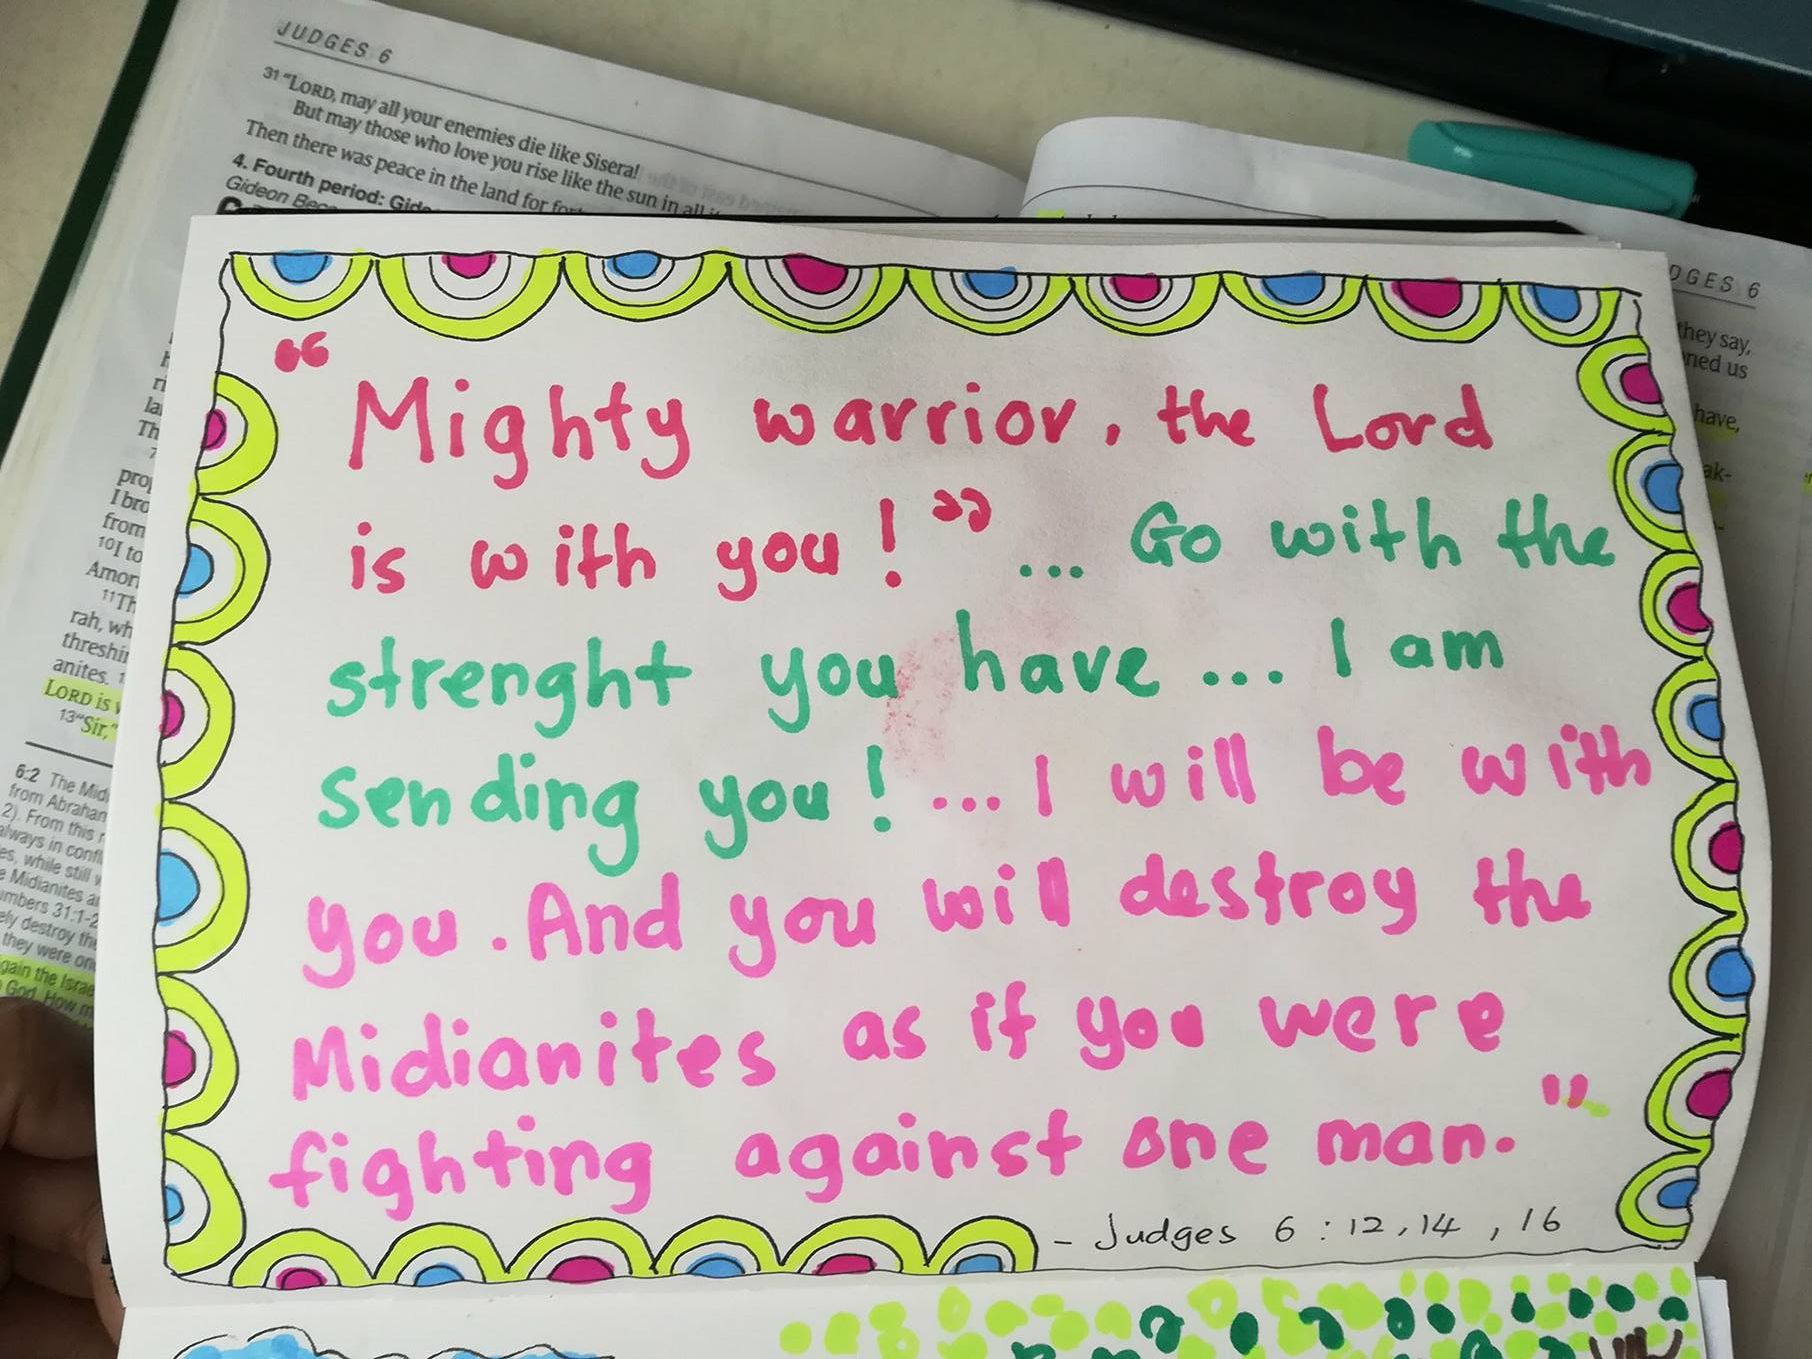 JUDGES 6
31 "LORD, may all your enemies die like Sisera!
But may those who love you rise like the sun in all
Then there was peace in the land for
4. Fourth period:
Gideon
“Mighty warrior, the Lord
is with you!” ... Go with the
strenght you have ... I am
sending you! ... I will be with
you. And you will destroy the
Midianites as if you were
fighting against one man."
- Judges 6:12,14,16
6
they say,
us
have,
10I to
11Th
rah, wh
anites.
LORD is
13"Sir,"
6:2 The
from Abraham
2). From this
always in
while still
Midianites
31:1-2
destroy
they were
the
God. How